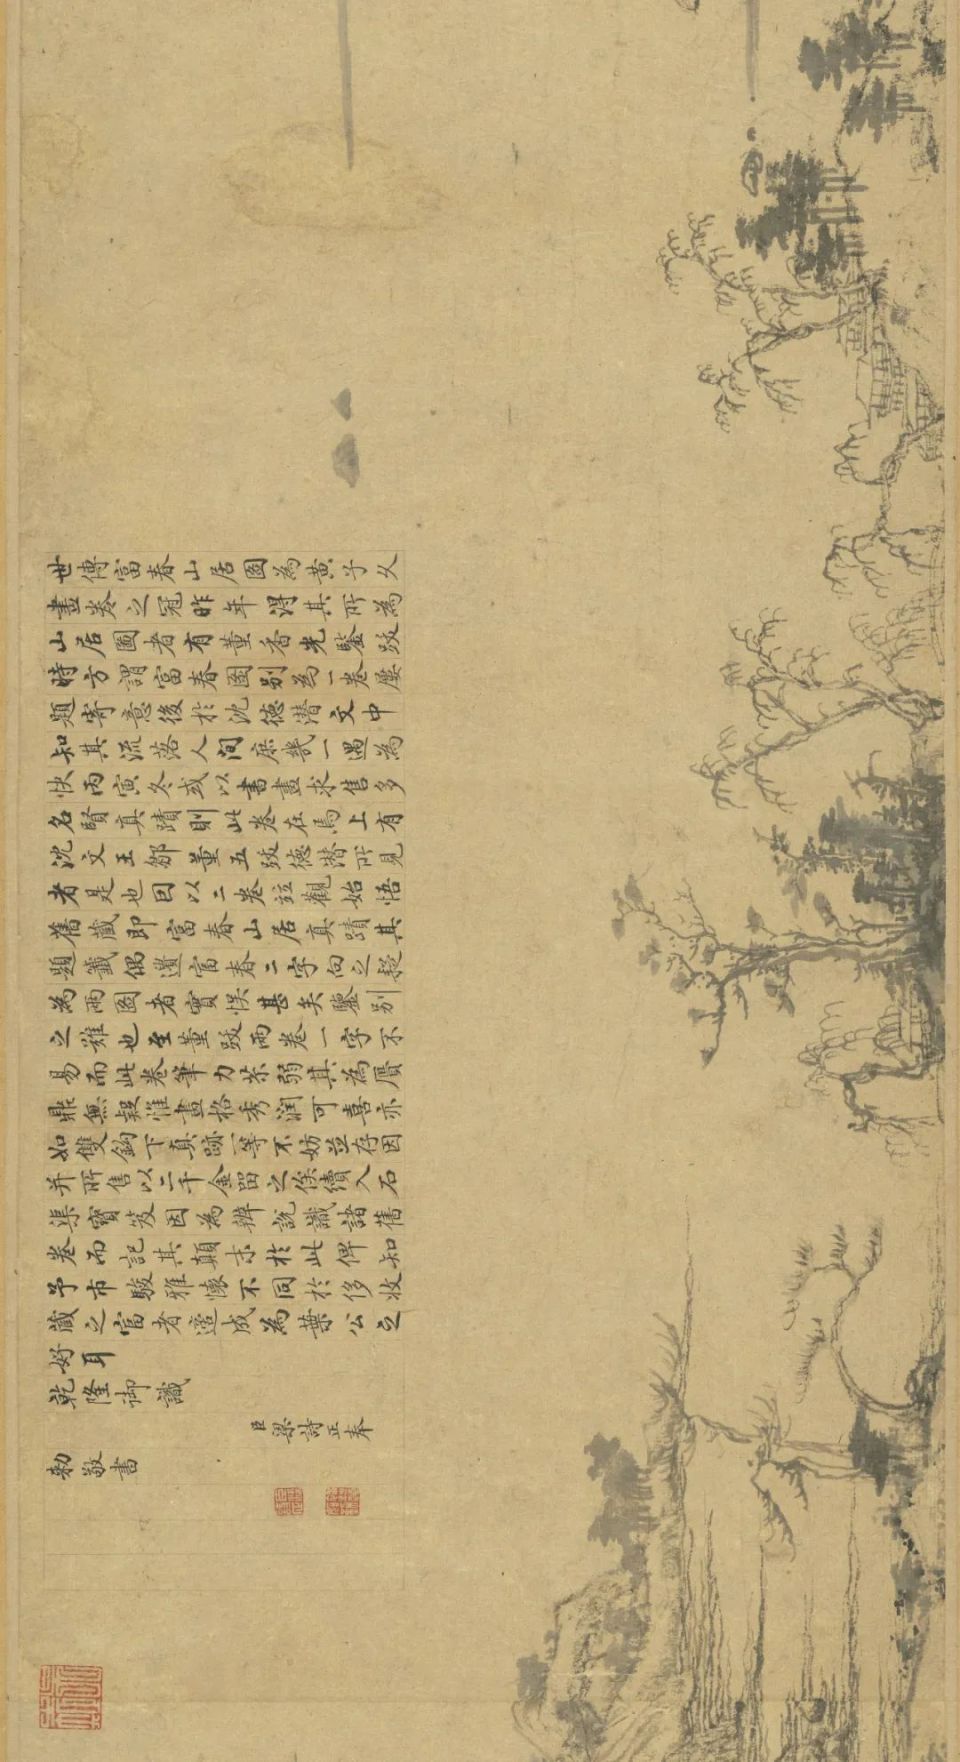 世傳富春山居圖為黃子久
畫卷之冠昨年得其所為
山居圖者有董香光鑒跋
時方謂富春圖別為一卷屢
題寄意後於沈德潛文中
知其流落人間庶幾一遇為
快丙寅冬或以書畫求售多
名賢真蹟則此卷在焉上有
沈文王鄒董五跋德潛所見
者是也因以二卷並觀始悟
舊藏即富春山居真蹟其
題籤偶遺富春二字向之疑
為兩圖者實悮甚矣鑒別
之難也至董跋兩卷一字不
易而此卷筆力苶弱其為贋
鼎無疑惟畫格秀潤可喜亦
如雙鈎下真跡一等不妨並存因
并所售以二千金留之俟續入石
渠寶笈因為辨說識諸舊
卷而記其顛末於此俾知
予市駿雅懷不同於侈收
藏之富者適成為葉公之
好耳
乾隆御識
臣梁詩正奉
勅敬書